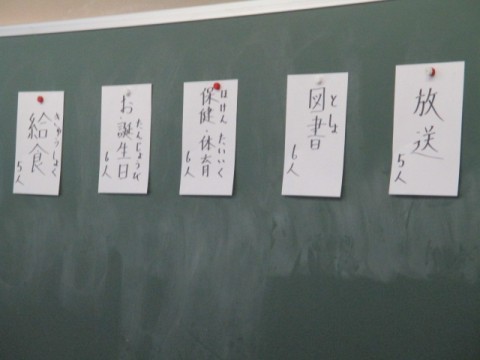 放送
5人
としょ
図書
6人
ほけん たいいく
保健・体育
6人
たんじょうび
お誕生日
6人
きゅうしょく
給食
5人